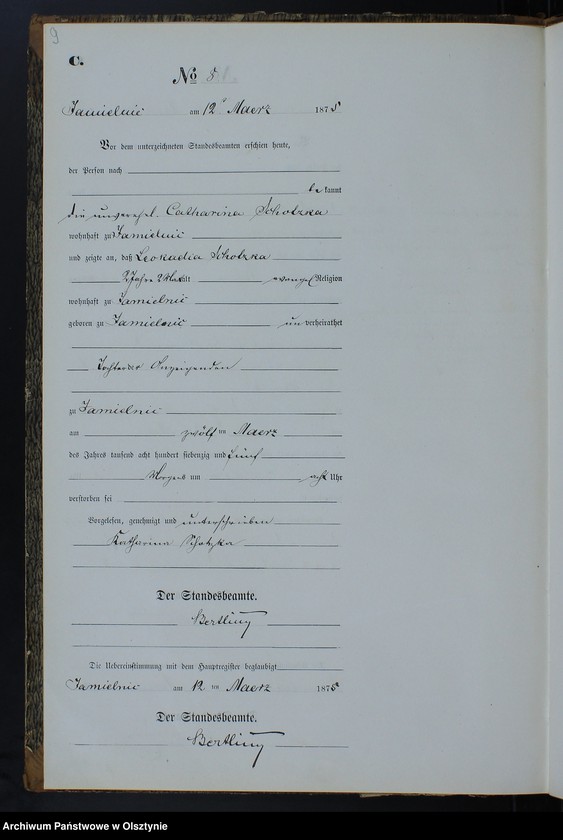 9
C.
No 8.
Jamielnic am 12 Maerz 1875
Vor dem unterzeichneten Standesbeamten erschien heute,
der Person nach
be kannt
die unverehel. Catharina Schotzka
wohnhaft zu Jamielnic
und zeigte an, daß Leokadia Schotzka
2 Jahre 2 alt evangel Religion
wohnhaft zu Jamielnic
geboren zu Jamielnic un verheirathet
Tochter der Anzeigenden
zu Jamielnic
am zwölf ten Maerz
des Jahres tausend acht hundert siebenzig und fünf
Morgens um acht Uhr
verstorben sei
Vorgelesen, genehmigt und unterschrieben
Katharina Schotzka
Der Standesbeamte.
Bertling
Die Uebereinstimmung mit dem Hauptregister beglaubigt
Jamielnic am 12 ten Maerz 1875
Der Standesbeamte.
Bertling
Archiwum Państwowe w Olsztynie